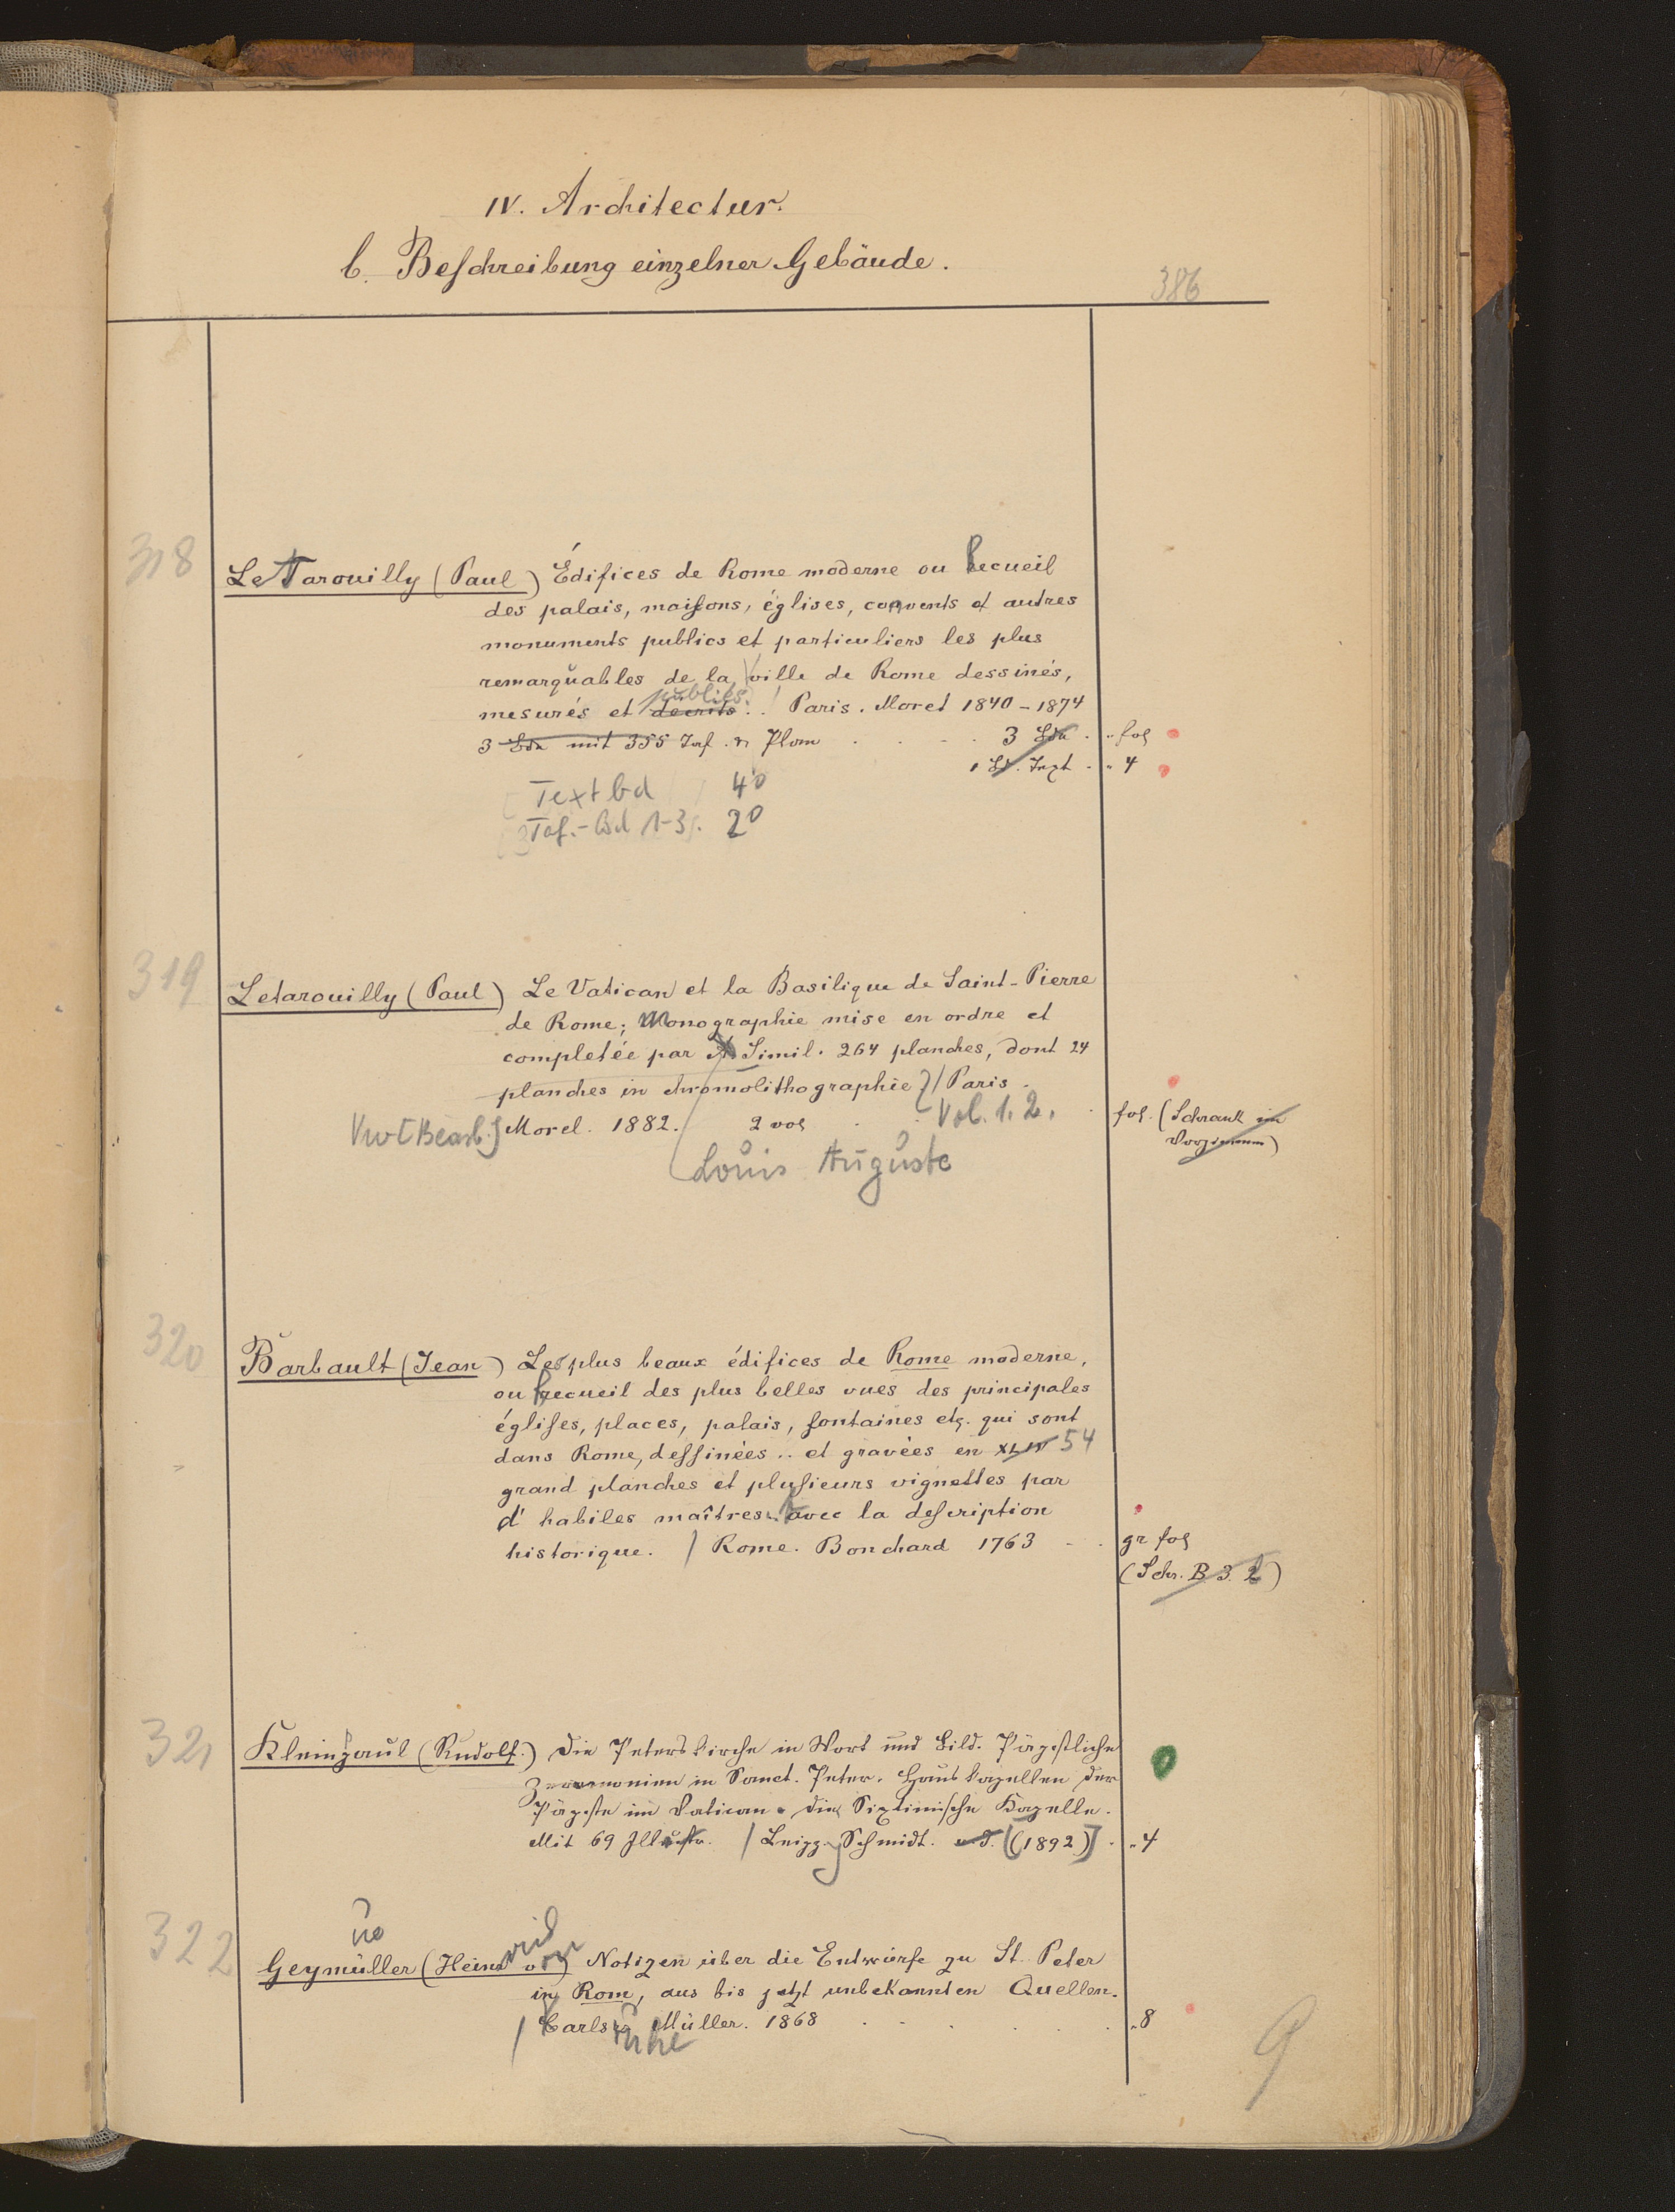 IV. Architectur.
b. Beschreibung einzelner Gebäude.
386
318
Le Tarouilly (Paul) Édifices de Rome moderne ou Recueil
des palais, maisons, églises, couvents et autres
monuments publics et particuliers les plus
remarquables de la ville de Rome dessinés,
publiés
mesurés et décrits .. Paris. Morel 1840-1874
3 Bde mit 355 Taf. u. Plan . . . . 3 Bde . " fol
1 Bd. Text . " 4
Text bd 4°
Taf.-Bd 1-3. 2°
319
Letarouilly (Paul) Le Vatican et la Basilique de Saint-Pierre
de Rome; Monographie mise en ordre et
completée par A. Simil. 264 planches, dont 24
planches in chromolithographie / Paris .
Vw [Bearb.] Morel. 1882. 2 vol . . Vol. 1. 2. . fol. (Schrank im
Vorzimmer)
Louis Auguste
320
Barbault (Jean) Les plus beaux édifices de Rome moderne,
ou Recueil des plus belles vues des principales
églises, places, palais, fontaines etc. qui sont
dans Rome, dessinées .. et gravées en XLIV 54
grand planches et plusieurs vignettes par
d'habiles maîtres. avec la description
historique. / Rome. Bouchard 1763 . . gr fol
(Schr. B. 3. 2)
321
Kleinpaul (Rudolf.) Die Peterskirche in Wort und Bild. Päpstliche
Zeremonien in Sanct. Peter. Hauskapellen der
Päpste im Vatican. Die Sixtinische Kapelle.
Mit 69 Illustr. / Leipz. Schmidt. o. J. [(1892)] . " 4
322
Geymüller (Heinrich von) Notizen über die Entwürfe zu St. Peter
in Rom, aus bis jetzt unbekannten Quellen.
/ Carlsruhe Müller. 1868 . . . . . " 8
9